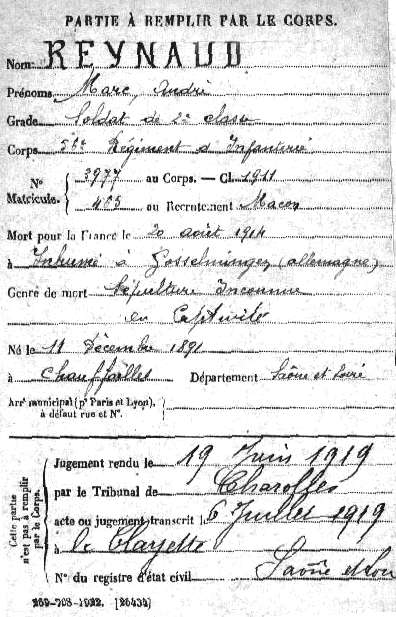 PARTIE À REMPLIR PAR LE CORPS.
Nom REYNAUD
Prénoms Marc, André
Grade Soldat de 2e classe
Corps 56e Régiment d'Infanterie
No Matricule. 3977 au Corps. — Cl. 1911
465 au Recrutement Macon
Mort pour la France le 20 août 1914
à Inhumé à Gosselmingen (allemagne)
Genre de mort Sépulture Inconnue
en Captivité
Né le 11 Décembre 1891
à Chauffailles Département Saône et Loire
Arrt municipal (pr Paris et Lyon), à défaut rue et No.
Cette partie n'est pas à remplir par le Corps.
Jugement rendu le 19 Juin 1919
par le Tribunal de Charolles
acte ou jugement transcrit le 6 Juillet 1919
à la Clayette
No du registre d'état civil Saône et Loire
269-708-1922. [26434]